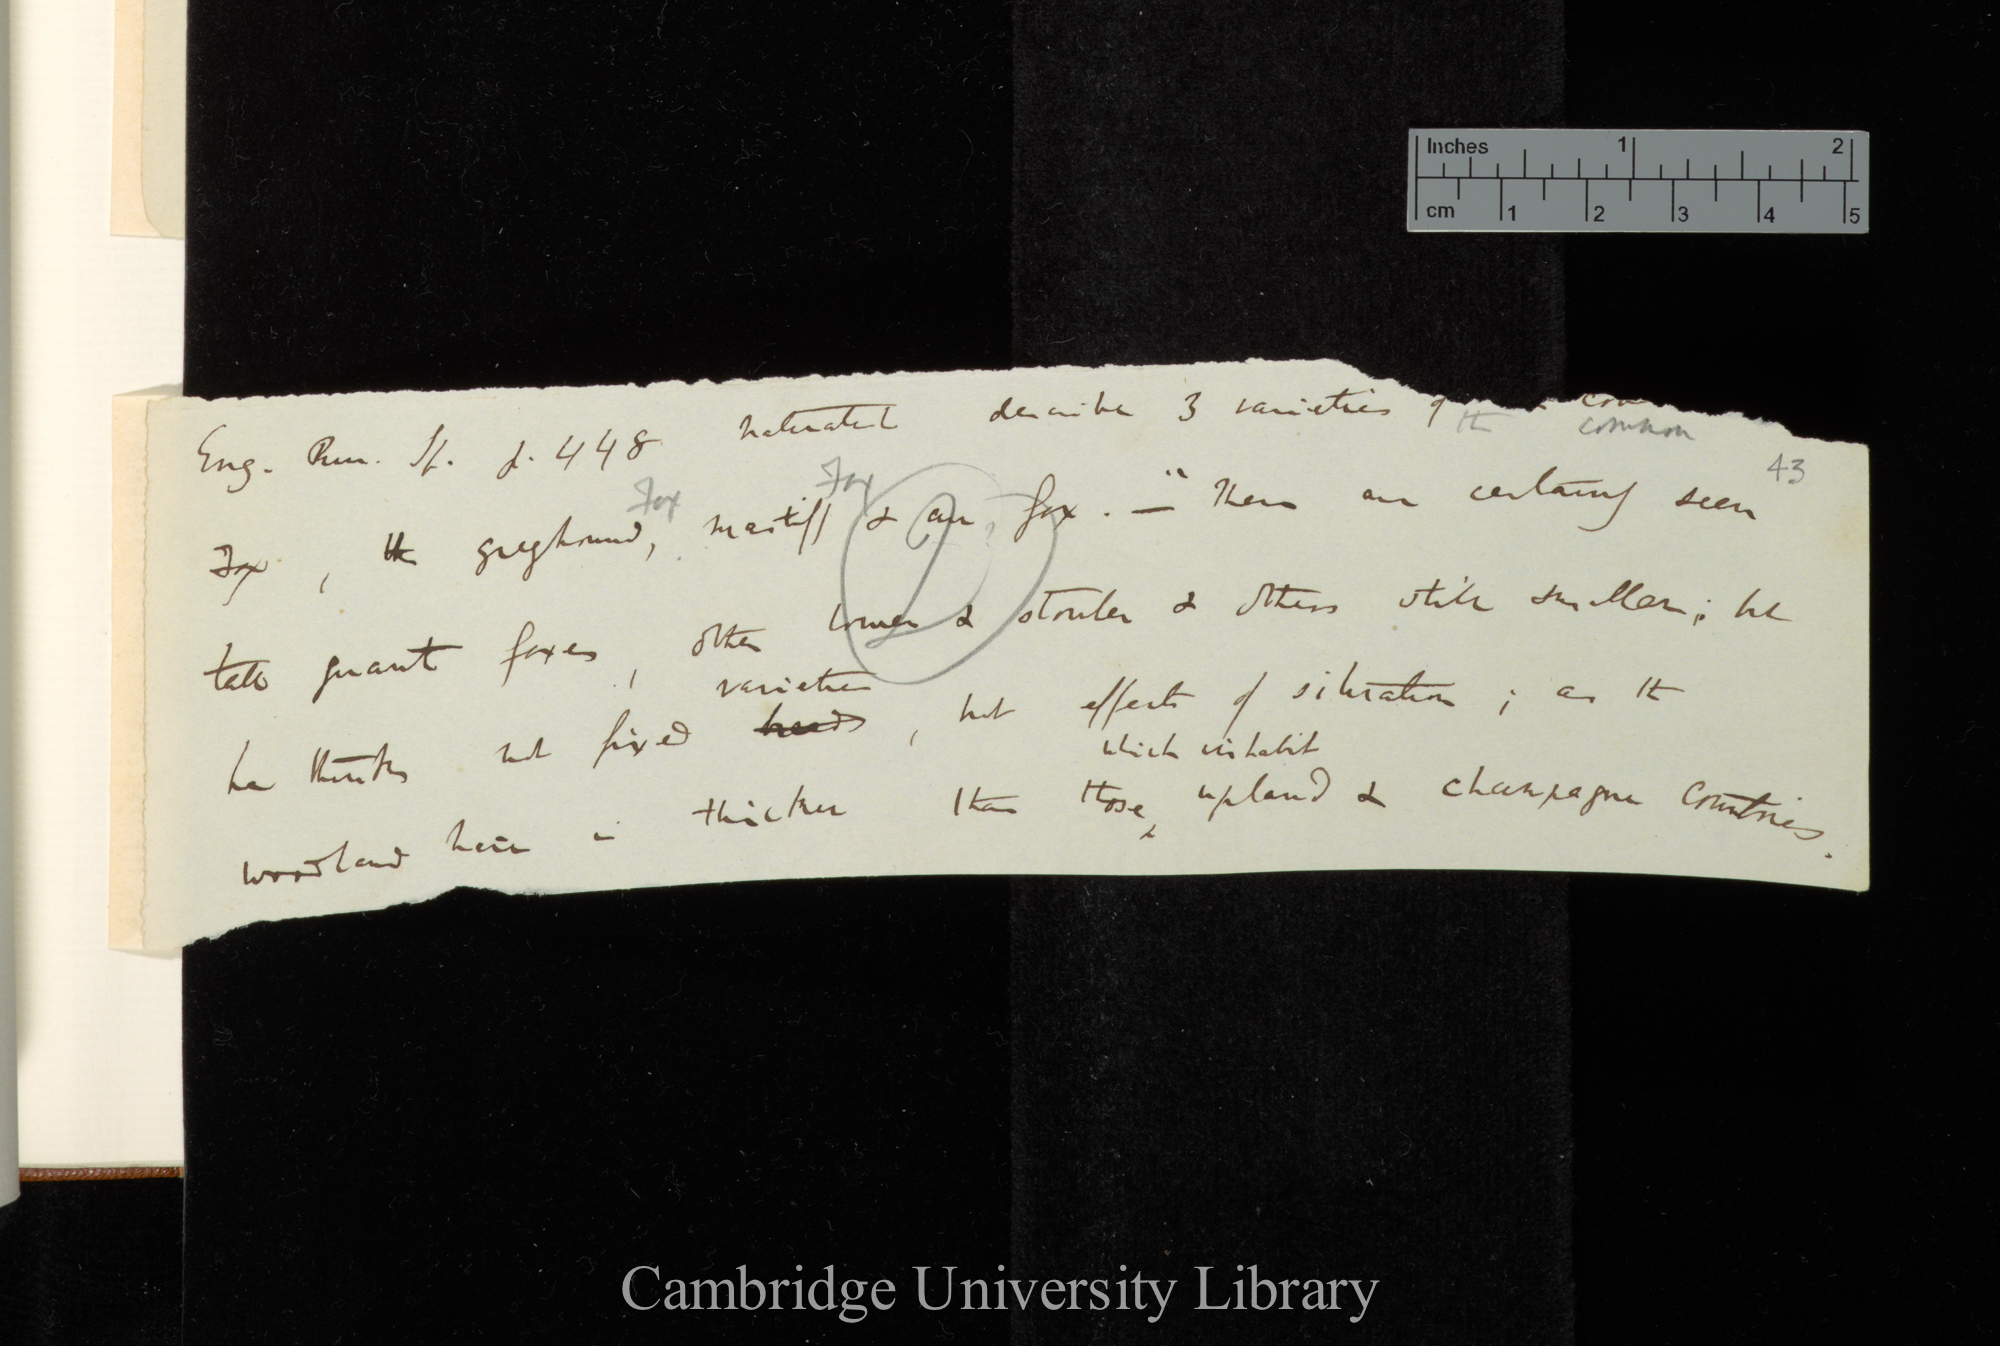 Inches 1 2
cm 1 2 3 4 5
Eng. Rur. Sp. p. 448 naturalist describes 3 varieties of the common
43
Fox Fox
Fox, the greyhound, mastiff & cur fox. — "There are certainly seen
tall gaunt foxes, other lower & stouter & others still smaller; but
varieties
he thinks not fixed breeds, but effects of situation; as the
which inhabit
woodland hare is thicker than those upland & champagne countries.
Cambridge University Library